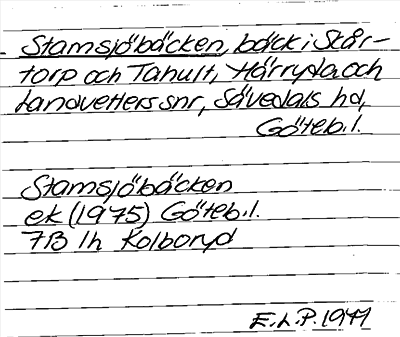 Stamsjöbäcken, bäck i Skår-
torp och Tahult, Härryda och
Landvetters snr, Sävedals hd,
Göteb.l.
Stamsjöbäcken
ek (1975) Göteb.l.
7B 1h Kolboryd
E.L.P. 1977